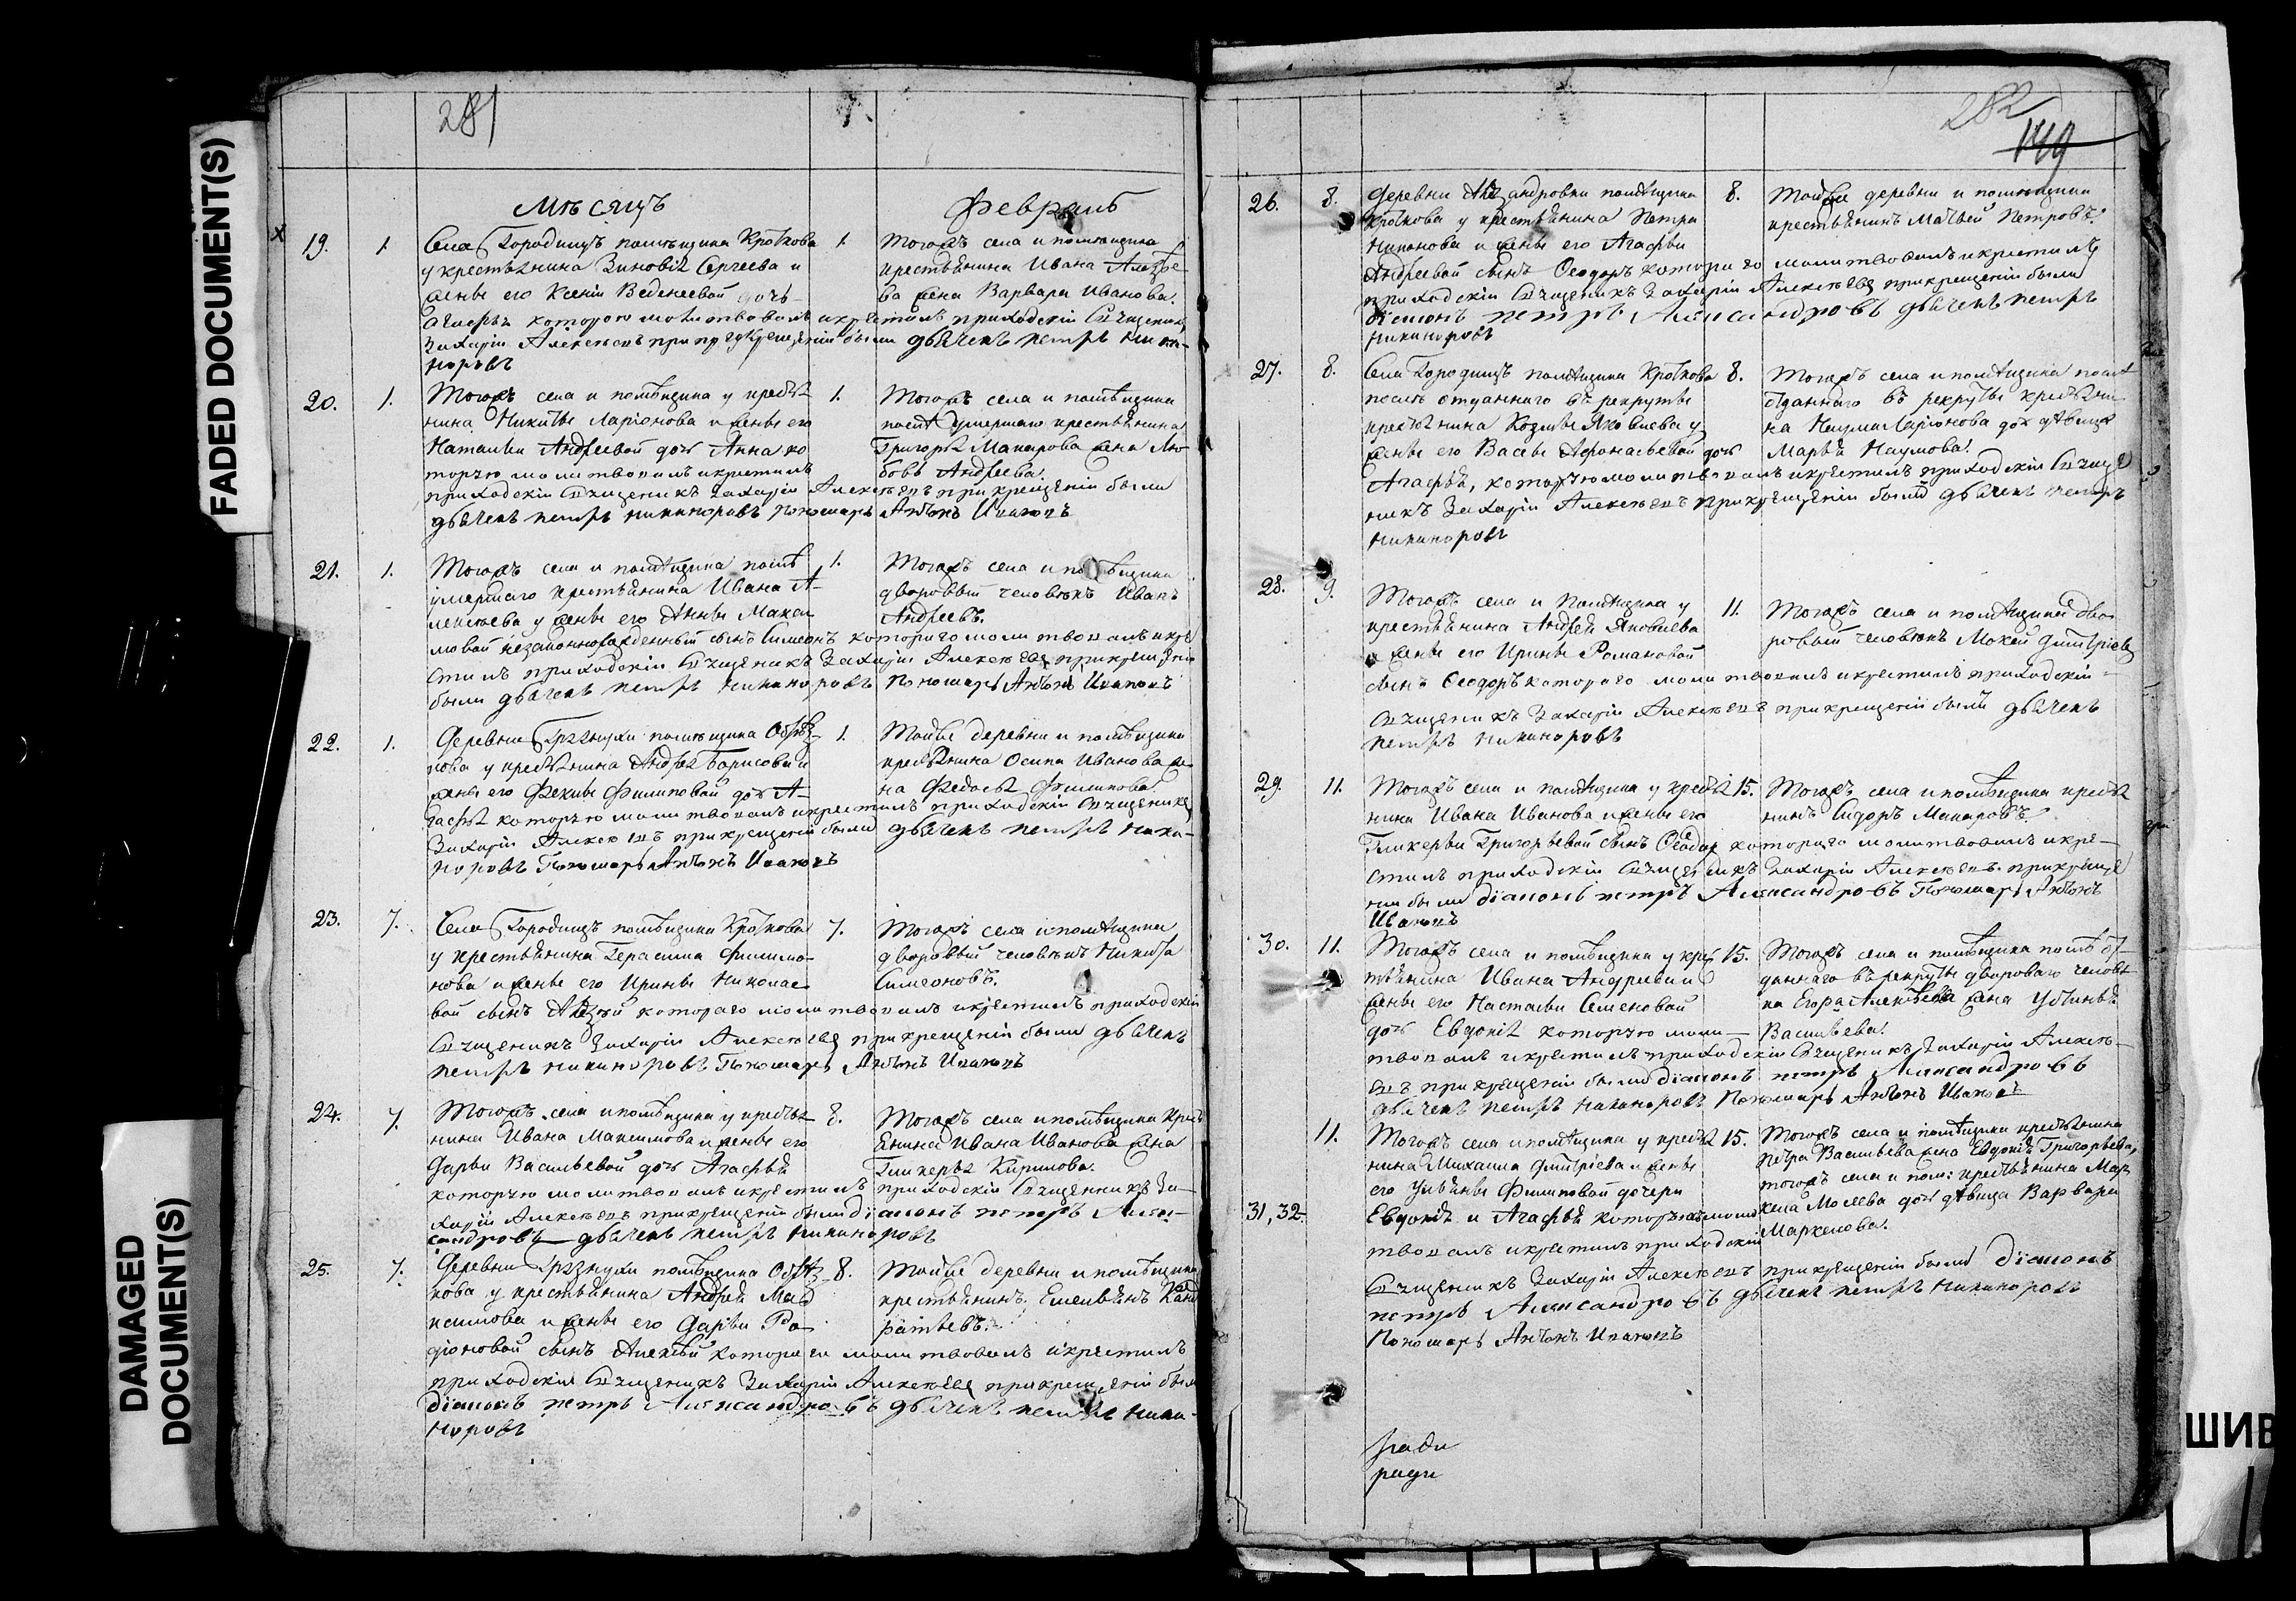 FADED DOCUMENT(S)
DAMAGED
DOCUMENT(S)
281
Мѣсяцъ Февраль
19. 1. Села Городищъ помѣщика Кроткова
у крестьянина Зиновія Сергеева и
жены его Ксеніи Веденеевой дочь
Агаѳья которою молитвовалъ и крестилъ приходскій Священникъ
Захарій Алексѣевъ при крещеніи были дьячекъ петръ Никa-
норовъ
1. Тогожъ села и помѣщика
крестьянина Ивана
жена Варвара Иванова.
20. 1. Тогожъ села и помѣщика у крестья
нина Никиты Ларіонова и жены его
Натальи Андреевой дочь Анна ко
торую молитвовалъ и крестилъ
приходскій Священникъ Захарій Алексѣевъ при крещеніи были
дьячекъ петръ никаноровъ Пономарь Антонъ Ивановъ
1. Тогожъ села и помѣщика
послѣ умершаго крестьянина
Григорья Макарова жена Лю
бовь Андреева.
21. 1. Тогожъ села и помѣщика послѣ
умершаго крестьянина Ивана А-
лексѣева у жены его Анны Макси
мовой незаконнорожденный сынъ Симеонъ котораго молитвовалъ и кре
стилъ приходскій Священникъ Захарій Алексѣевъ при крещеніи
были дьячекъ петръ никаноровъ Пономарь Антонъ Ивановъ
1. Тогожъ села и помѣщика
дворовый человѣкъ Иванъ
Андреевъ.
22. 1. Деревни Грязнухи помѣщика Обрѣз-
кова у крестьянина Андрея Борисова и
жены его Феклы Филиповой дочь А-
гафья которую молитвовалъ и крестилъ приходскій Священникъ
Захарій Алексѣевъ при крещеніи были дьячекъ петръ Ника-
норовъ Пономарь Антонъ Ивановъ
1. Тойже деревни и помѣщика
крестьянина Осипа Иванова же
на Федосья Филипова.
23. 7. Села Городищъ помѣщика Кроткова
у крестьянина Герасима Филимо-
нова и жены его Ирины Николае
вой сынъ котораго молитвовалъ и крестилъ приходскій
Священникъ Захарій Алексѣевъ при крещеніи были дьячекъ
петръ никаноровъ Пономарь Антонъ Ивановъ
7. Тогожъ села и помѣщика
дворовый человѣкъ Никита
Симеоновъ.
24. 7. Тогожъ села и помѣщика у крестья
нина Ивана Максимова и жены его
Дарьи Васильевой дочь Агафья
которую молитвовалъ и крестилъ приходскій Священникъ За-
харій Алексѣевъ при крещеніи были діаконъ петръ Алек-
сандровъ дьячекъ петръ никаноровъ
8. Тогожъ села и помѣщика крест
янина Ивана Иванова жена
Гликерья Кирилова.
25. 7. Деревни Грязнухи помѣщика Обрѣз
кова у крестьянина Андрея Мак
симова и жены его Дарьи Ро-
діоновой сынъ Алексѣй котораго молитвовалъ и крестилъ
приходскій Священникъ Захарій Алексѣевъ при крещеніи были
діаконъ петръ Александровъ дьячекъ петръ Ника-
норовъ
8. Тойже деревни и помѣщика
крестьянинъ Емельянъ Конд
ратьевъ.
282
149
26. 8. Деревни помѣщика
Кроткова у крестьянина Петра
Никонова и жены его Агафьи
Андреевой сынъ Ѳеодоръ котораго молитвовалъ и крестилъ
приходскій Священникъ Захарій Алексѣевъ при крещеніи были
діаконъ петръ Александровъ дьячекъ петръ
Никаноровъ
8. Тойже деревни и помѣщика
крестьянинъ Матвей Петровъ.
27. 8. Села Городищъ помѣщика Кроткова
послѣ отданнаго въ рекруты
крестьянина Козмы Яковлева у
жены его Васы Афонасьевой дочь
Агафья, которую молитвовалъ и крестилъ приходскій Священ
никъ Захарій Алексѣевъ при крещеніи были дьячекъ петръ
Никаноровъ
8. Тогожъ села и помѣщика послѣ
отданнаго въ рекруты крестьяни
на Наума Ларіонова дочь дѣвица
Марья Наумова.
28. 9. Тогожъ села и Помѣщика у
крестьянина Андрея Яковлева
и жены его Ирины Романовой
сынъ Ѳеодоръ котораго молитвовалъ и крестилъ приходскій
Священникъ Захарій Алексѣевъ при крещеніи были дьячекъ
петръ никаноровъ
11. Тогожъ села и помѣщика дво
ровый человѣкъ Мокей Дмитріевъ
29. 11. Тогожъ села и помѣщика у крестья
нина Ивана Иванова и жены его
Гликерьи Григорьевой сынъ Ѳеодоръ котораго молитвовалъ и кре-
стилъ приходскій Священникъ Захарій Алексѣевъ при креще
ніи были діаконъ петръ Александровъ Пономарь Антонъ
Ивановъ
15. Тогожъ села и помѣщика крестья
нинъ Сидоръ Макаровъ
30. 11. Тогожъ села и помѣщика у крес
тьянина Ивана Андреева и
жены его Настасьи Семеновой
дочь Евдокія которую моли-
твовалъ и крестилъ приходскій Священникъ Захарій Алексѣ-
евъ при крещеніи были діаконъ петръ Александровъ
дьячекъ петръ никаноровъ Пономарь Антонъ Ивановъ
15. Тогожъ села и помѣщика послѣ от-
даннаго въ рекруты двороваго человѣ
ка Егора Алексѣева жена Устинья
Васильева.
31, 32. 11. Тогожъ села и помѣщика у крестья
нина Михаила Дмитріева и жены
его Ульяны Филиповой дочери
Евдокія и Агафья которыхъ моли
твовалъ и крестилъ приходскій
Священникъ Захарій Алексѣевъ при крещеніи были діаконъ
петръ Александровъ дьячекъ петръ Никаноровъ
Пономарь Антонъ Ивановъ
15. Тогожъ села и помѣщика крестьянина
Петра Васильева жена Евдокія Григорьева,
тогожъ села и пом: крестьянина Мар
кела Мосева дочь дѣвица Варвара
Маркелова.
ШИВ